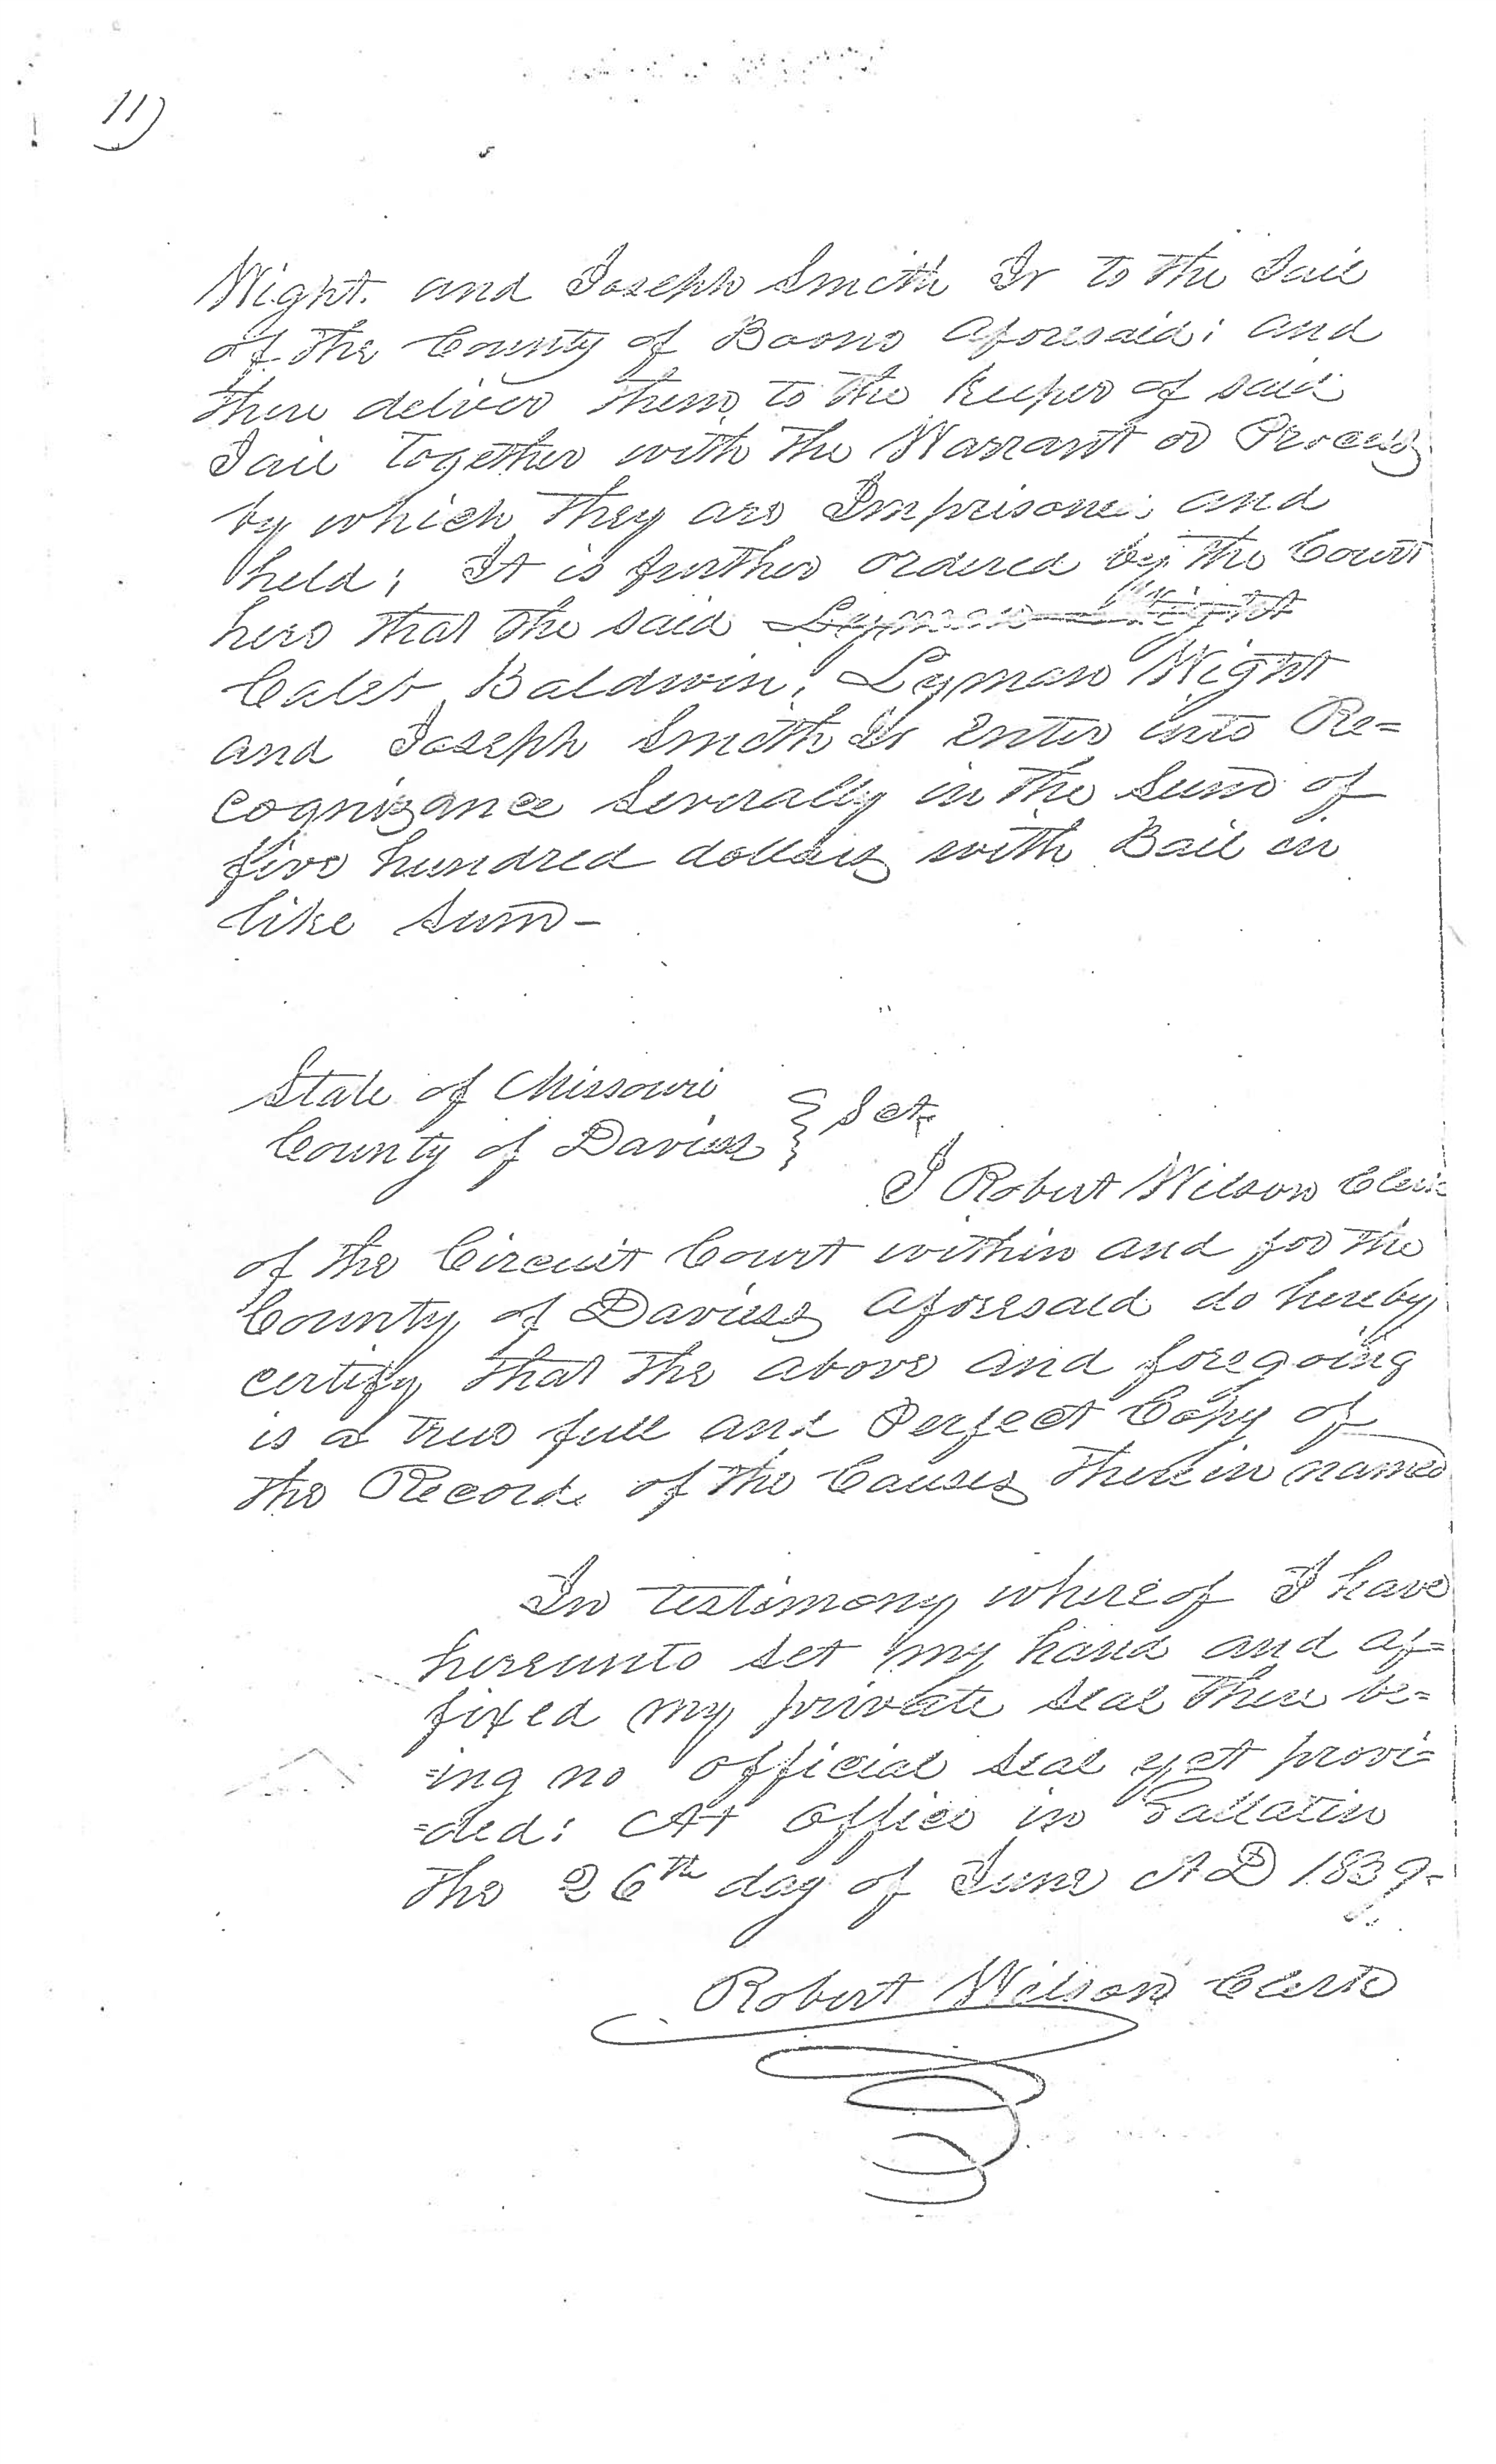 11)
Wight. and Joseph Smith Jr to the Jail
of the County of Boone aforesaid; and
there deliver them to the keeper of said
Jail together with the Warrant or Process
by which they are Imprisoned and
held; It is further ordered by the Court
here that the said Lyman Wight
Caleb Baldwin, Lyman Wight
and Joseph Smith Jr enter into Re=
cognizance severally in the sum of
five hundred dollars with Bail in
like sum-
State of Missouri
County of Daviess } Sct.
I Robert Wilson Clerk
of the Circuit Court within and for the
County of Daviess aforesaid do hereby
certify that the above and foregoing
is a true full and Perfect Copy of
the Record of the Causes therein named
In testimony whereof I have
hereunto set my hand and af=
fixed my private seal there be=
=ing no official seal yet provi=
=ded: At office in Gallatin
the 26th day of June AD 1839-
Robert Wilson Clerk